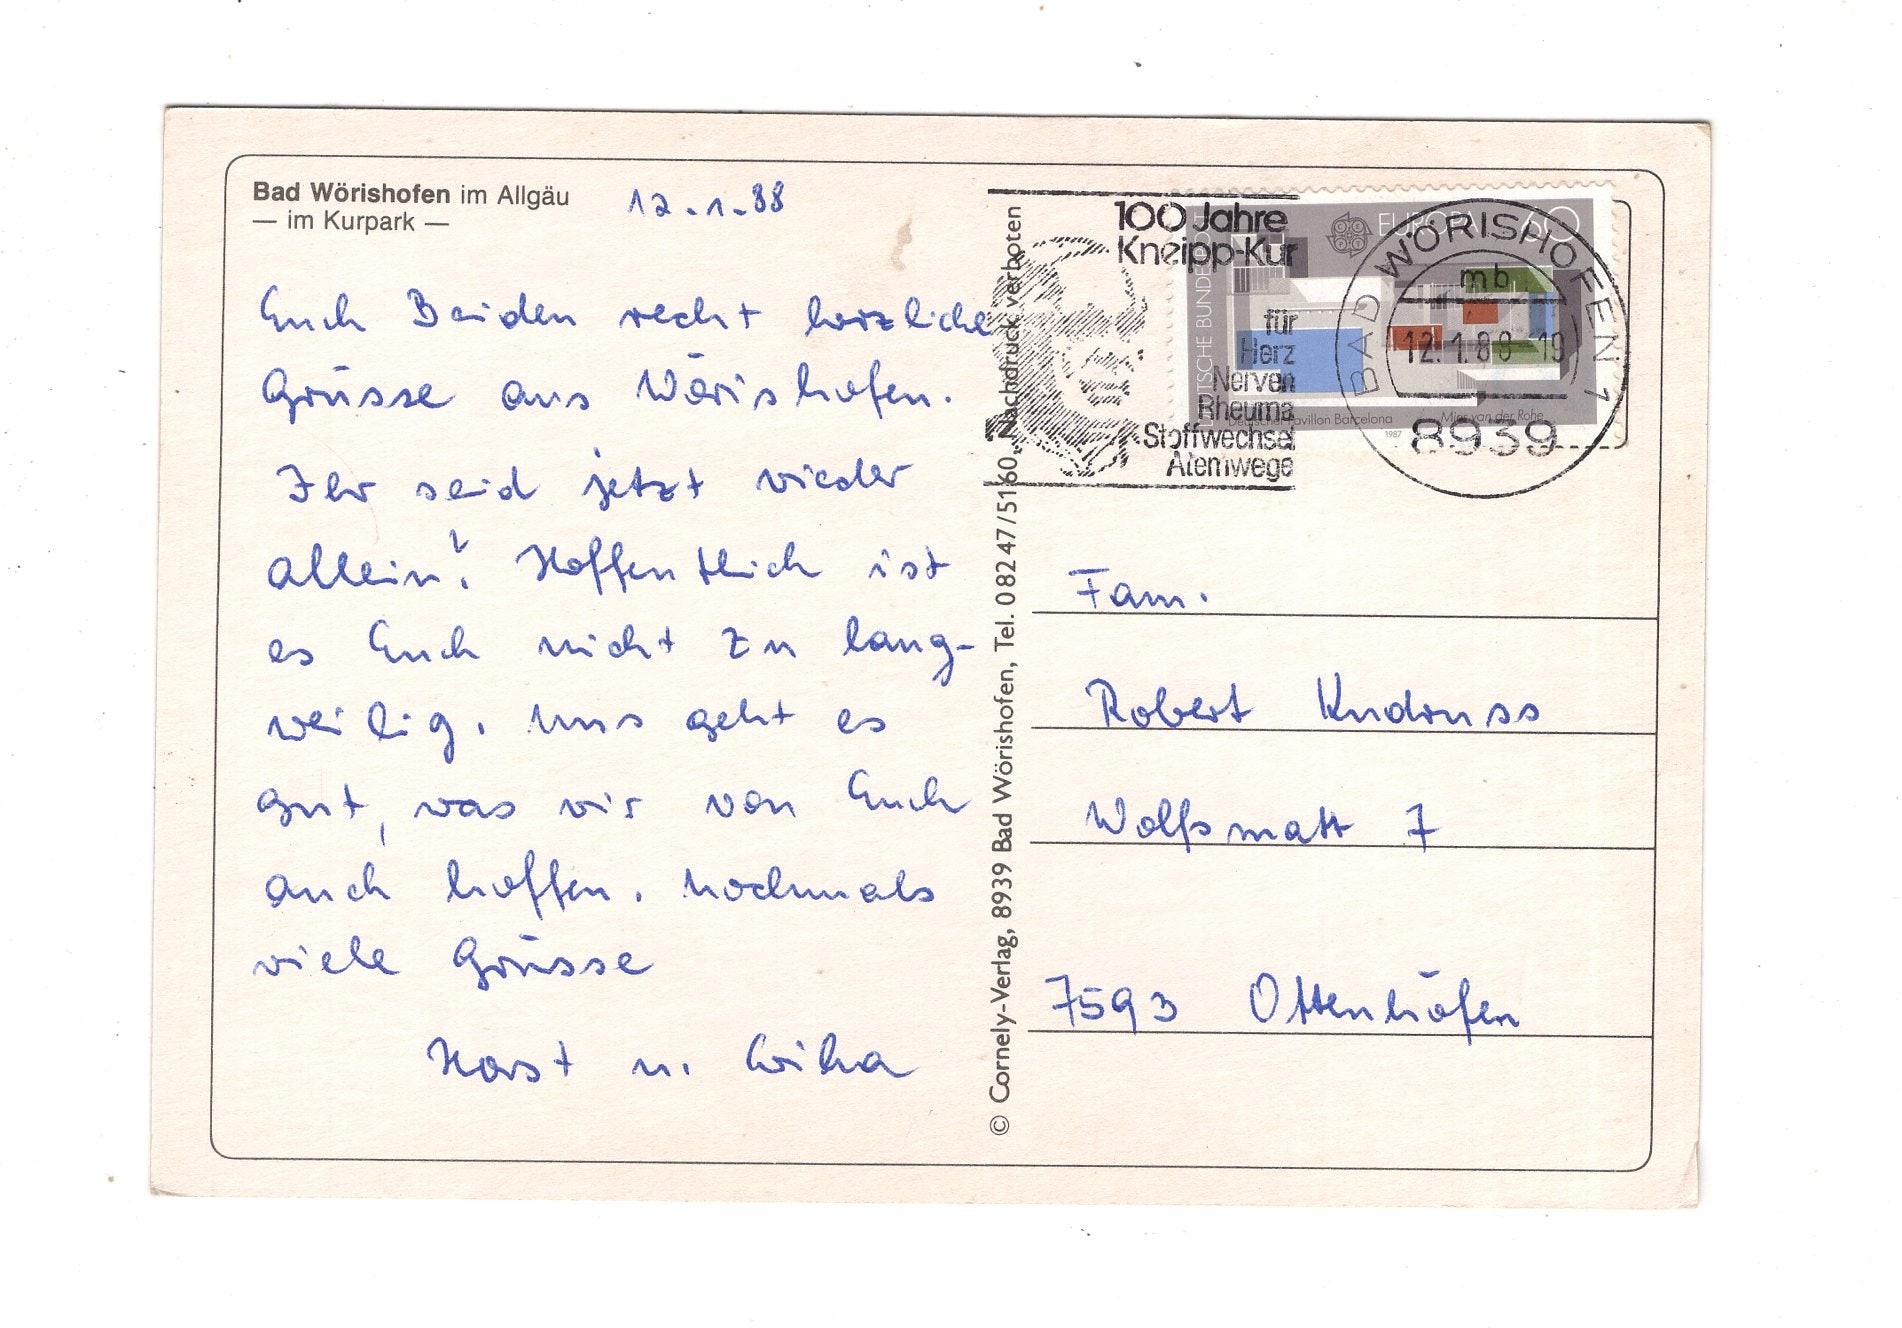 Bad Wörishofen im Allgäu
— im Kurpark —
12.1.88
Euch Beiden recht herzliche
Grüsse aus Wörishofen.
Ihr seid jetzt wieder
allein? Hoffentlich ist
es Euch nicht zu lang-
weilig. Uns geht es
gut, was wir von Euch
auch hoffen. Nochmals
viele Grüsse
Horst u.
© Cornely-Verlag, 8939 Bad Wörishofen, Tel. 08247/5160, Nachdruck verboten
100 Jahre
Kneipp-Kur
für
Herz
Nerven
Rheuma
Stoffwechsel
Atemwege
DEUTSCHE BUNDESPOST
EUROPA 60
Deutscher Pavillon Barcelona
Mies van der Rohe
1987
BAD WÖRISHOFEN 1
mb
12.1.88-19
8939
Fam.
Robert
Wolfsmatt 7
7593 Ottenhöfen